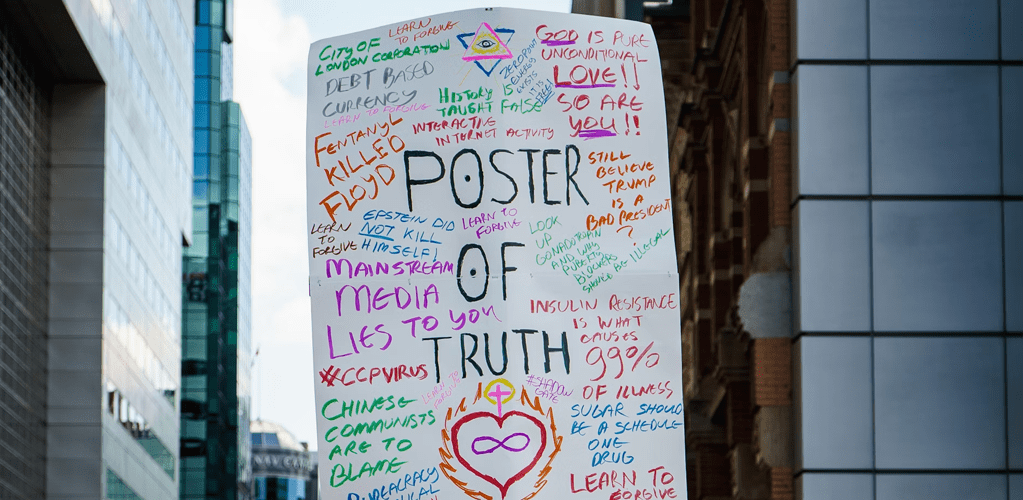 LEARN TO FORGIVE
CITY OF
LONDON CORPORATION
DEBT BASED
CURRENCY
LEARN TO FORGIVE
FENTANYL
KILLED
FLOYD
ZERO POINT
ENERGY
EXISTS
IT IS
FREE!
HISTORY IS
TAUGHT FALSE
INTERACTIVE
INTERNET ACTIVITY
GOD IS PURE
UNCONDITIONAL
LOVE!!
SO ARE
YOU!!
POSTER
OF
TRUTH
STILL
BELIEVE
TRUMP
IS A
BAD PRESIDENT
?
LEARN
TO
FORGIVE
EPSTEIN DID
NOT KILL
HIMSELF!
LEARN TO
FORGIVE
LOOK
UP
AND WHY
PUBERTY
BLOCKERS
SHOULD BE ILLEGAL
MAINSTREAM
MEDIA
LIES TO YOU
INSULIN RESISTANCE
IS WHAT
CAUSES
99%
OF ILLNESS
#CCPVIRUS
LEARN TO
FORGIVE
#SHADOW
GATE
CHINESE
COMMUNISTS
ARE TO
BLAME
SUGAR SHOULD
BE A SCHEDULE
ONE
DRUG
LEARN TO
FORGIVE